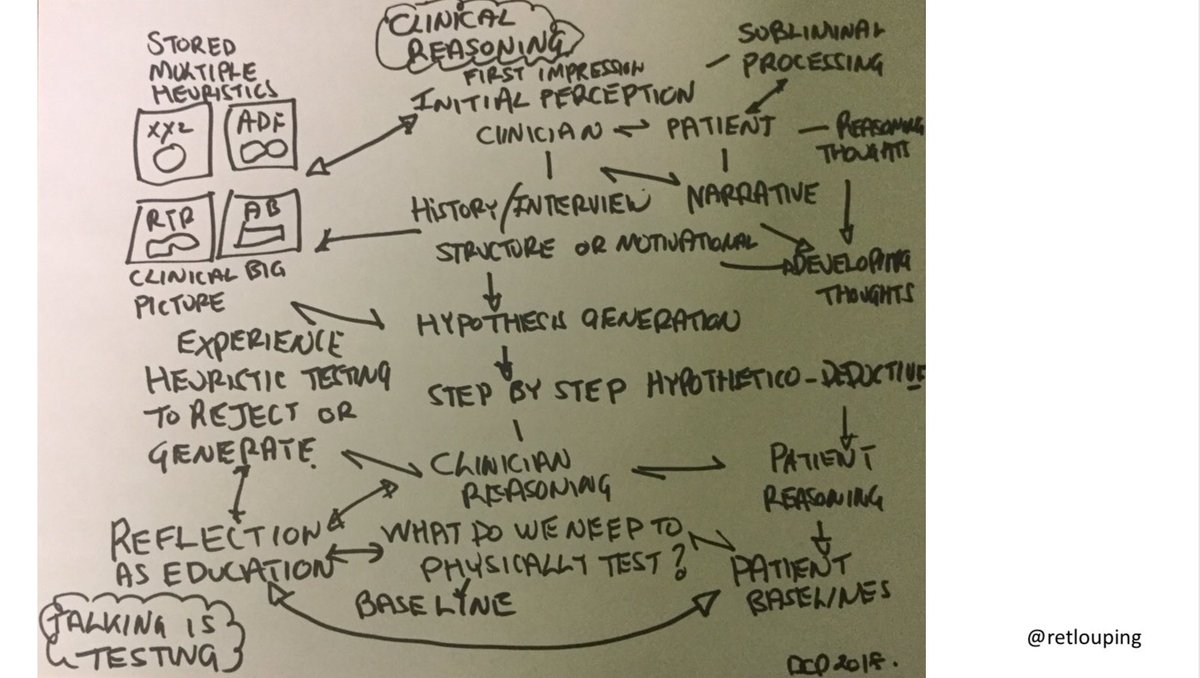 CLINICAL
REASONING
STORED
MULTIPLE
HEURISTICS
XYZ
ADF
RTP
AB
CLINICAL BIG
PICTURE
FIRST IMPRESSION
INITIAL PERCEPTION
SUBLIMINAL
PROCESSING
CLINICIAN
PATIENT
REASONING
THOUGHTS
HISTORY/INTERVIEW
NARRATIVE
STRUCTURE OR MOTIVATIONAL
DEVELOPING
THOUGHTS
HYPOTHESIS GENERATION
EXPERIENCE
HEURISTIC TESTING
TO REJECT OR
GENERATE.
STEP BY STEP HYPOTHLETICO-DEDUCTIVE
CLINICIAN
REASONING
PATIENT
REASONING
REFLECTION
AS EDUCATION
WHAT DO WE NEED TO
PHYSICALLY TEST?
BASELINE
PATIENT
BASELINES
TALKING IS
TESTING
@retlouping